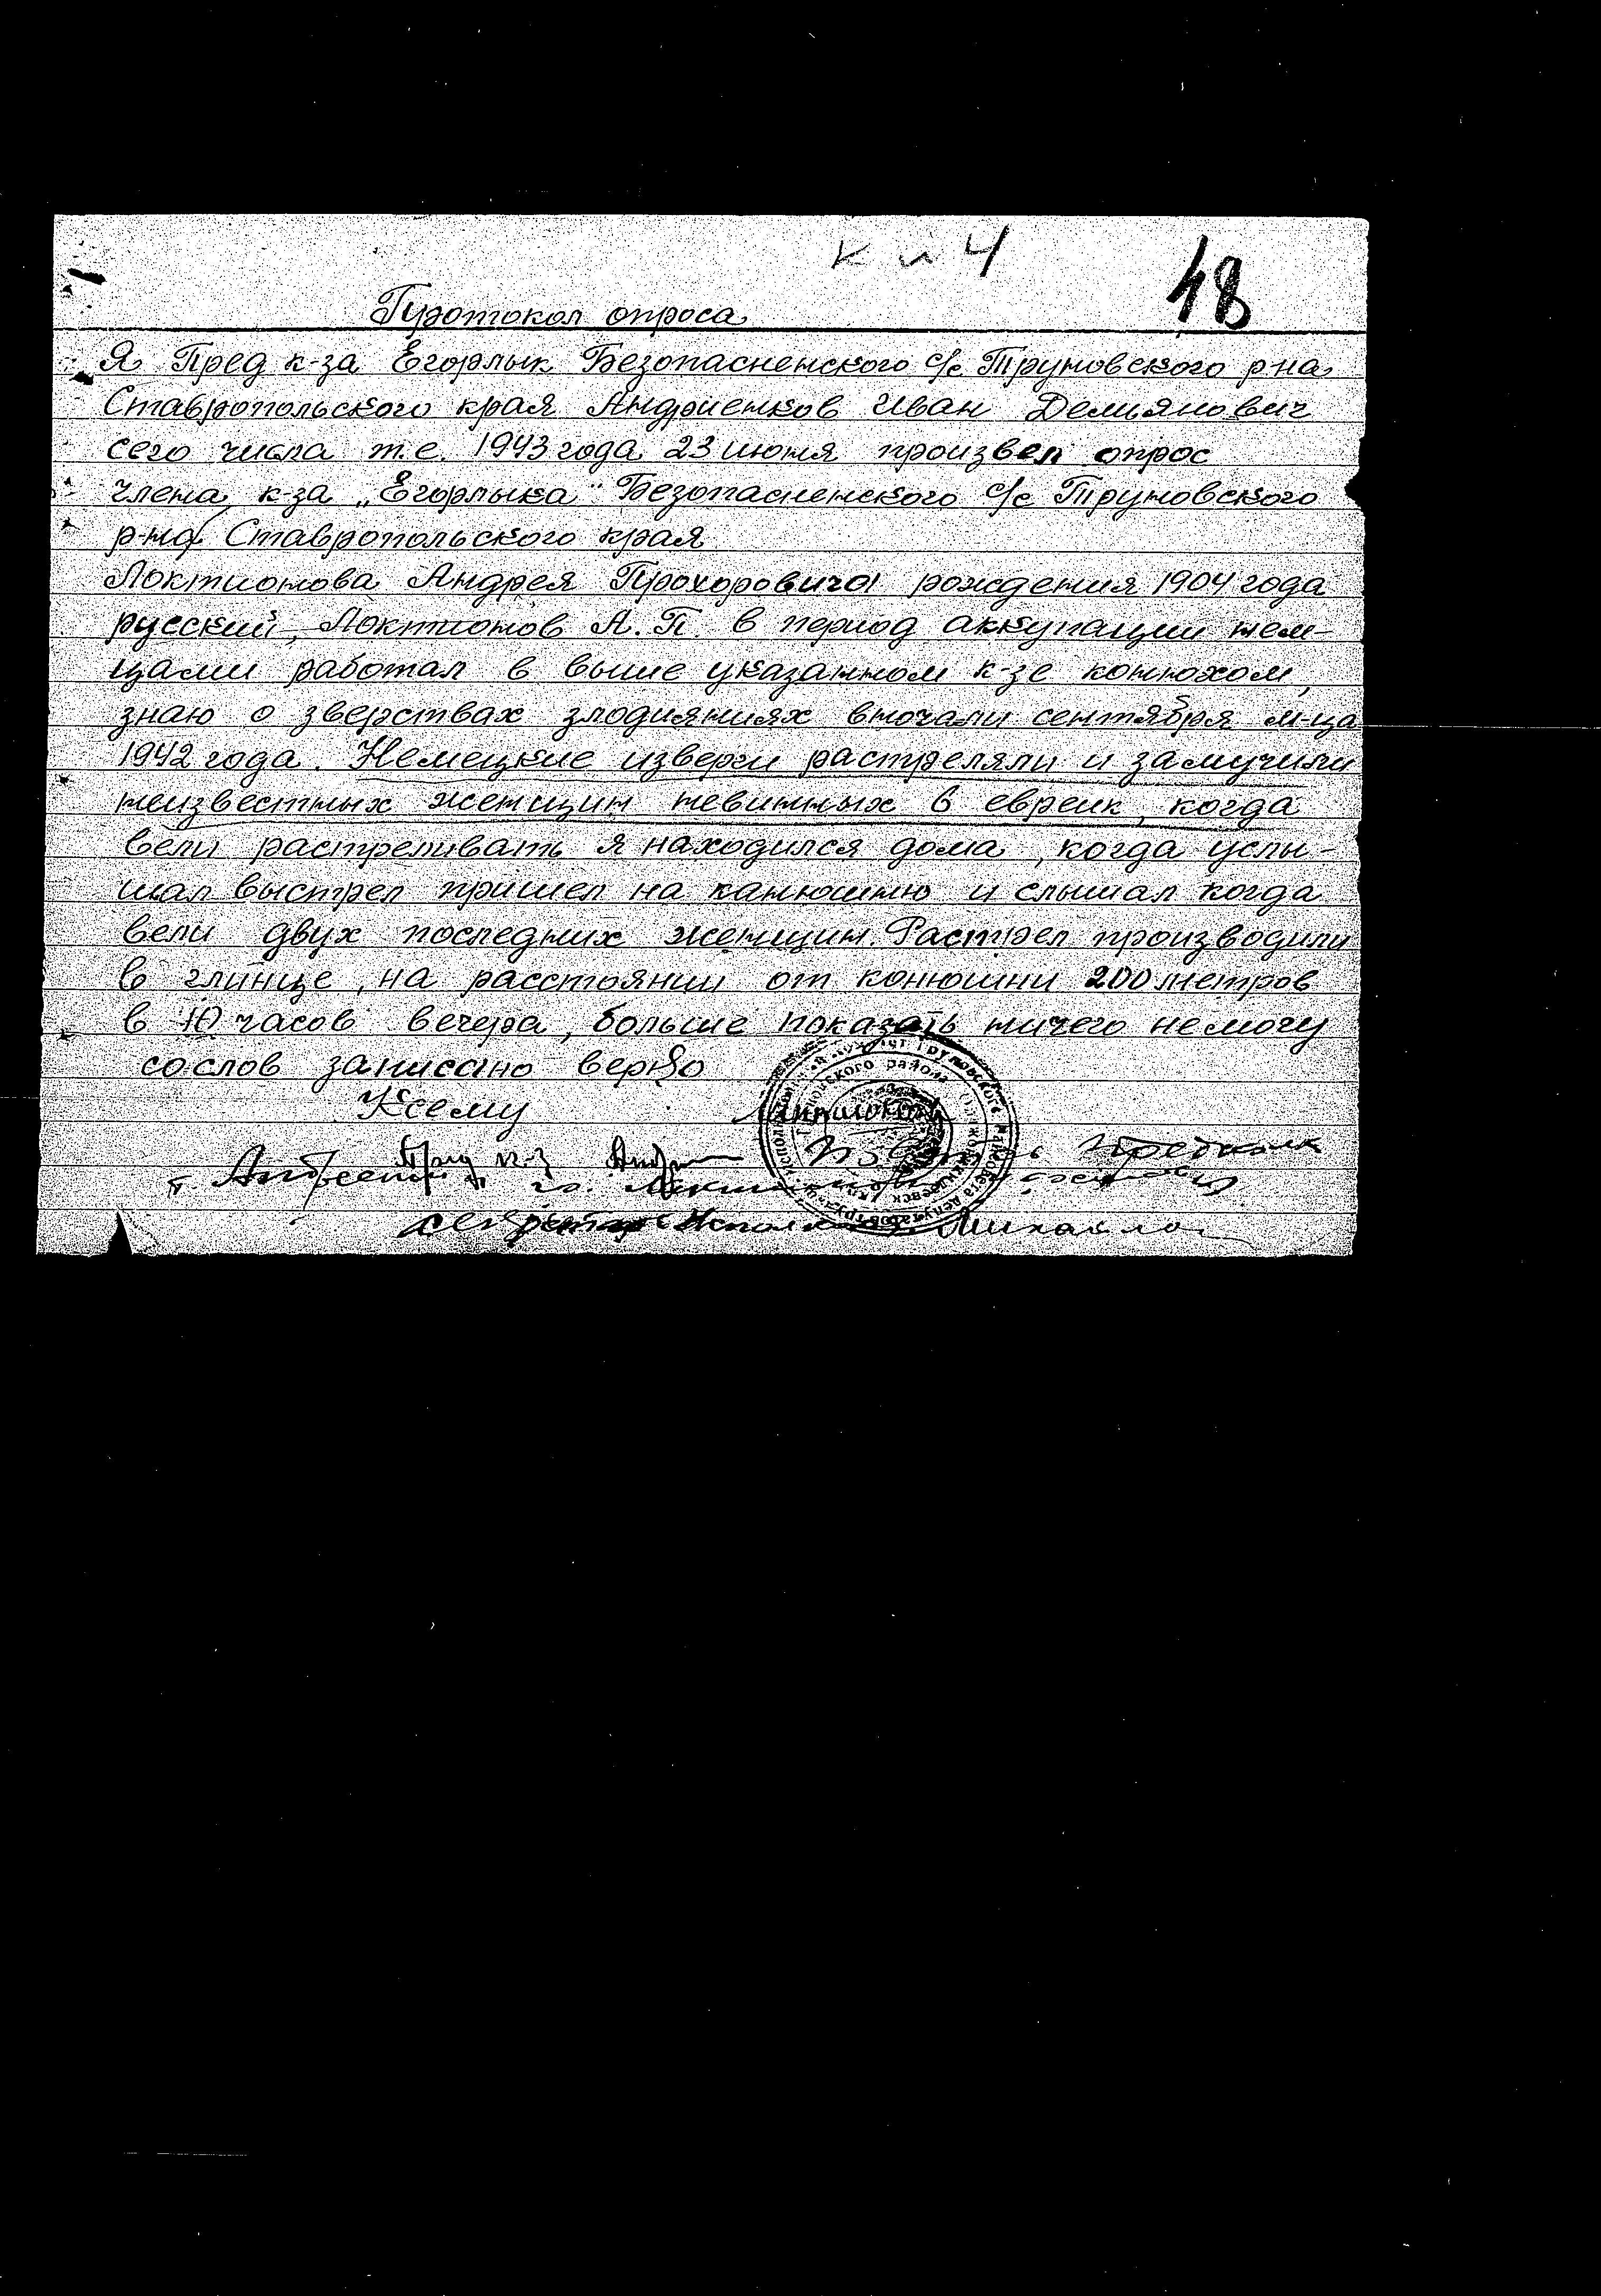 к п 4
48
Протокол опроса
Я Пред к-за Егорлык Безопасненского с/с Труновского р-на
Ставропольского края Андриенков Иван Демьянович
сего числа т.е. 1943 года 23 июня произвел опрос
члена к-за „Егорлыка" Безопасненского с/с Труновского
р-на Ставропольского края
Локтионова Андрея Прохоровича рождения 1904 года
русский, Локтионов А.П. в период аккупации нем-
цами работал в выше указанном к-зе конюхом,
знаю о зверствах злодияниях вночали сентября м-ца
1942 года. Немецкие изверги растреляли и замучили
неизвестных женщин невинных 6 евреик, когда
вели растреливать я находился дома, когда услы-
шал выстрел пришел на канюшню и слышал когда
вели двух последних женщин. Растрел производили
в глинце, на расстоянии от конюшни 200 метров
в 10 часов вечера, больше показать ничего немогу
сослов записано верно
Ксему
Пред к-з
секретарь Михайло